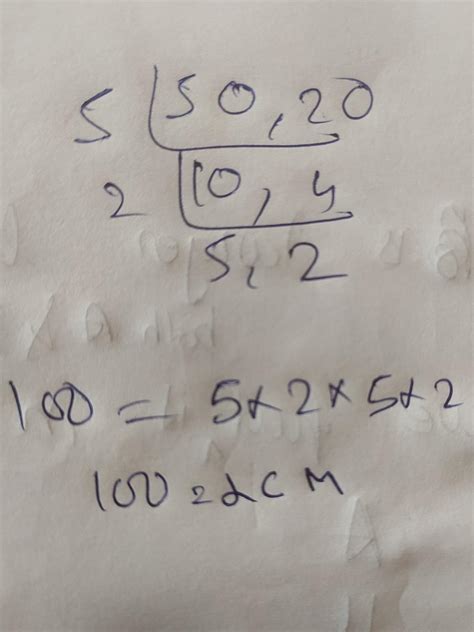 5 | 50, 20
2 | 10, 4
5, 2
100 = 5x2x5x2
100 = LCM